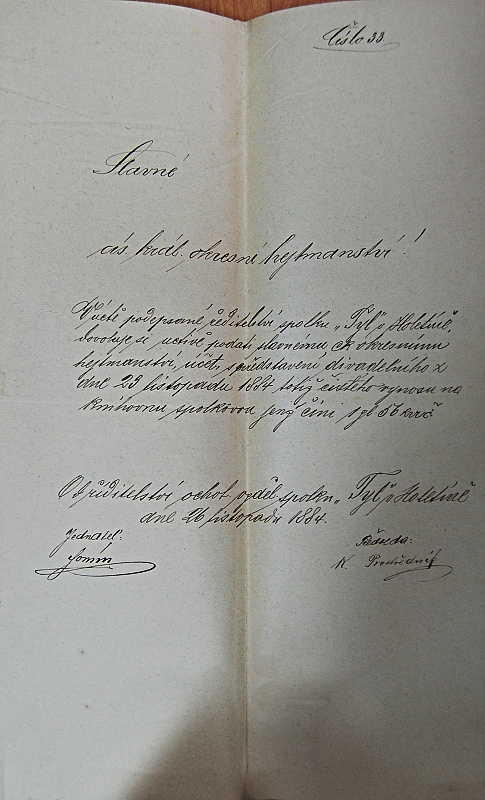 Číslo 33.
Slavné
cís. král. okresní hejtmanství!
V úctě podepsané ředitelství spolku „Tyl” v Holetíně
dovoluje si uctivě podati slavnému, ck okresnímu
hejtmanství, účet, s představení divadelního z
dne 23 listopadu 1884 totiž čistého výnosu na
knihovnu spolkovou jenž činí 1 gl 56
Od ředitelství ochot. vzděl. spolku „Tyl” v Holetíně
dne 26 listopadu 1884.
Jednatel:
Předseda:
K. Prostředník